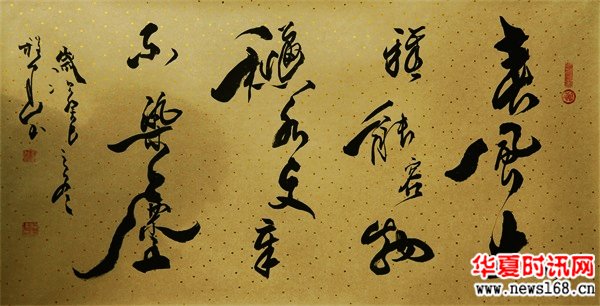 春風大
雅能容物
龝水文章
不染塵
华夏时讯网
www.news168.cn